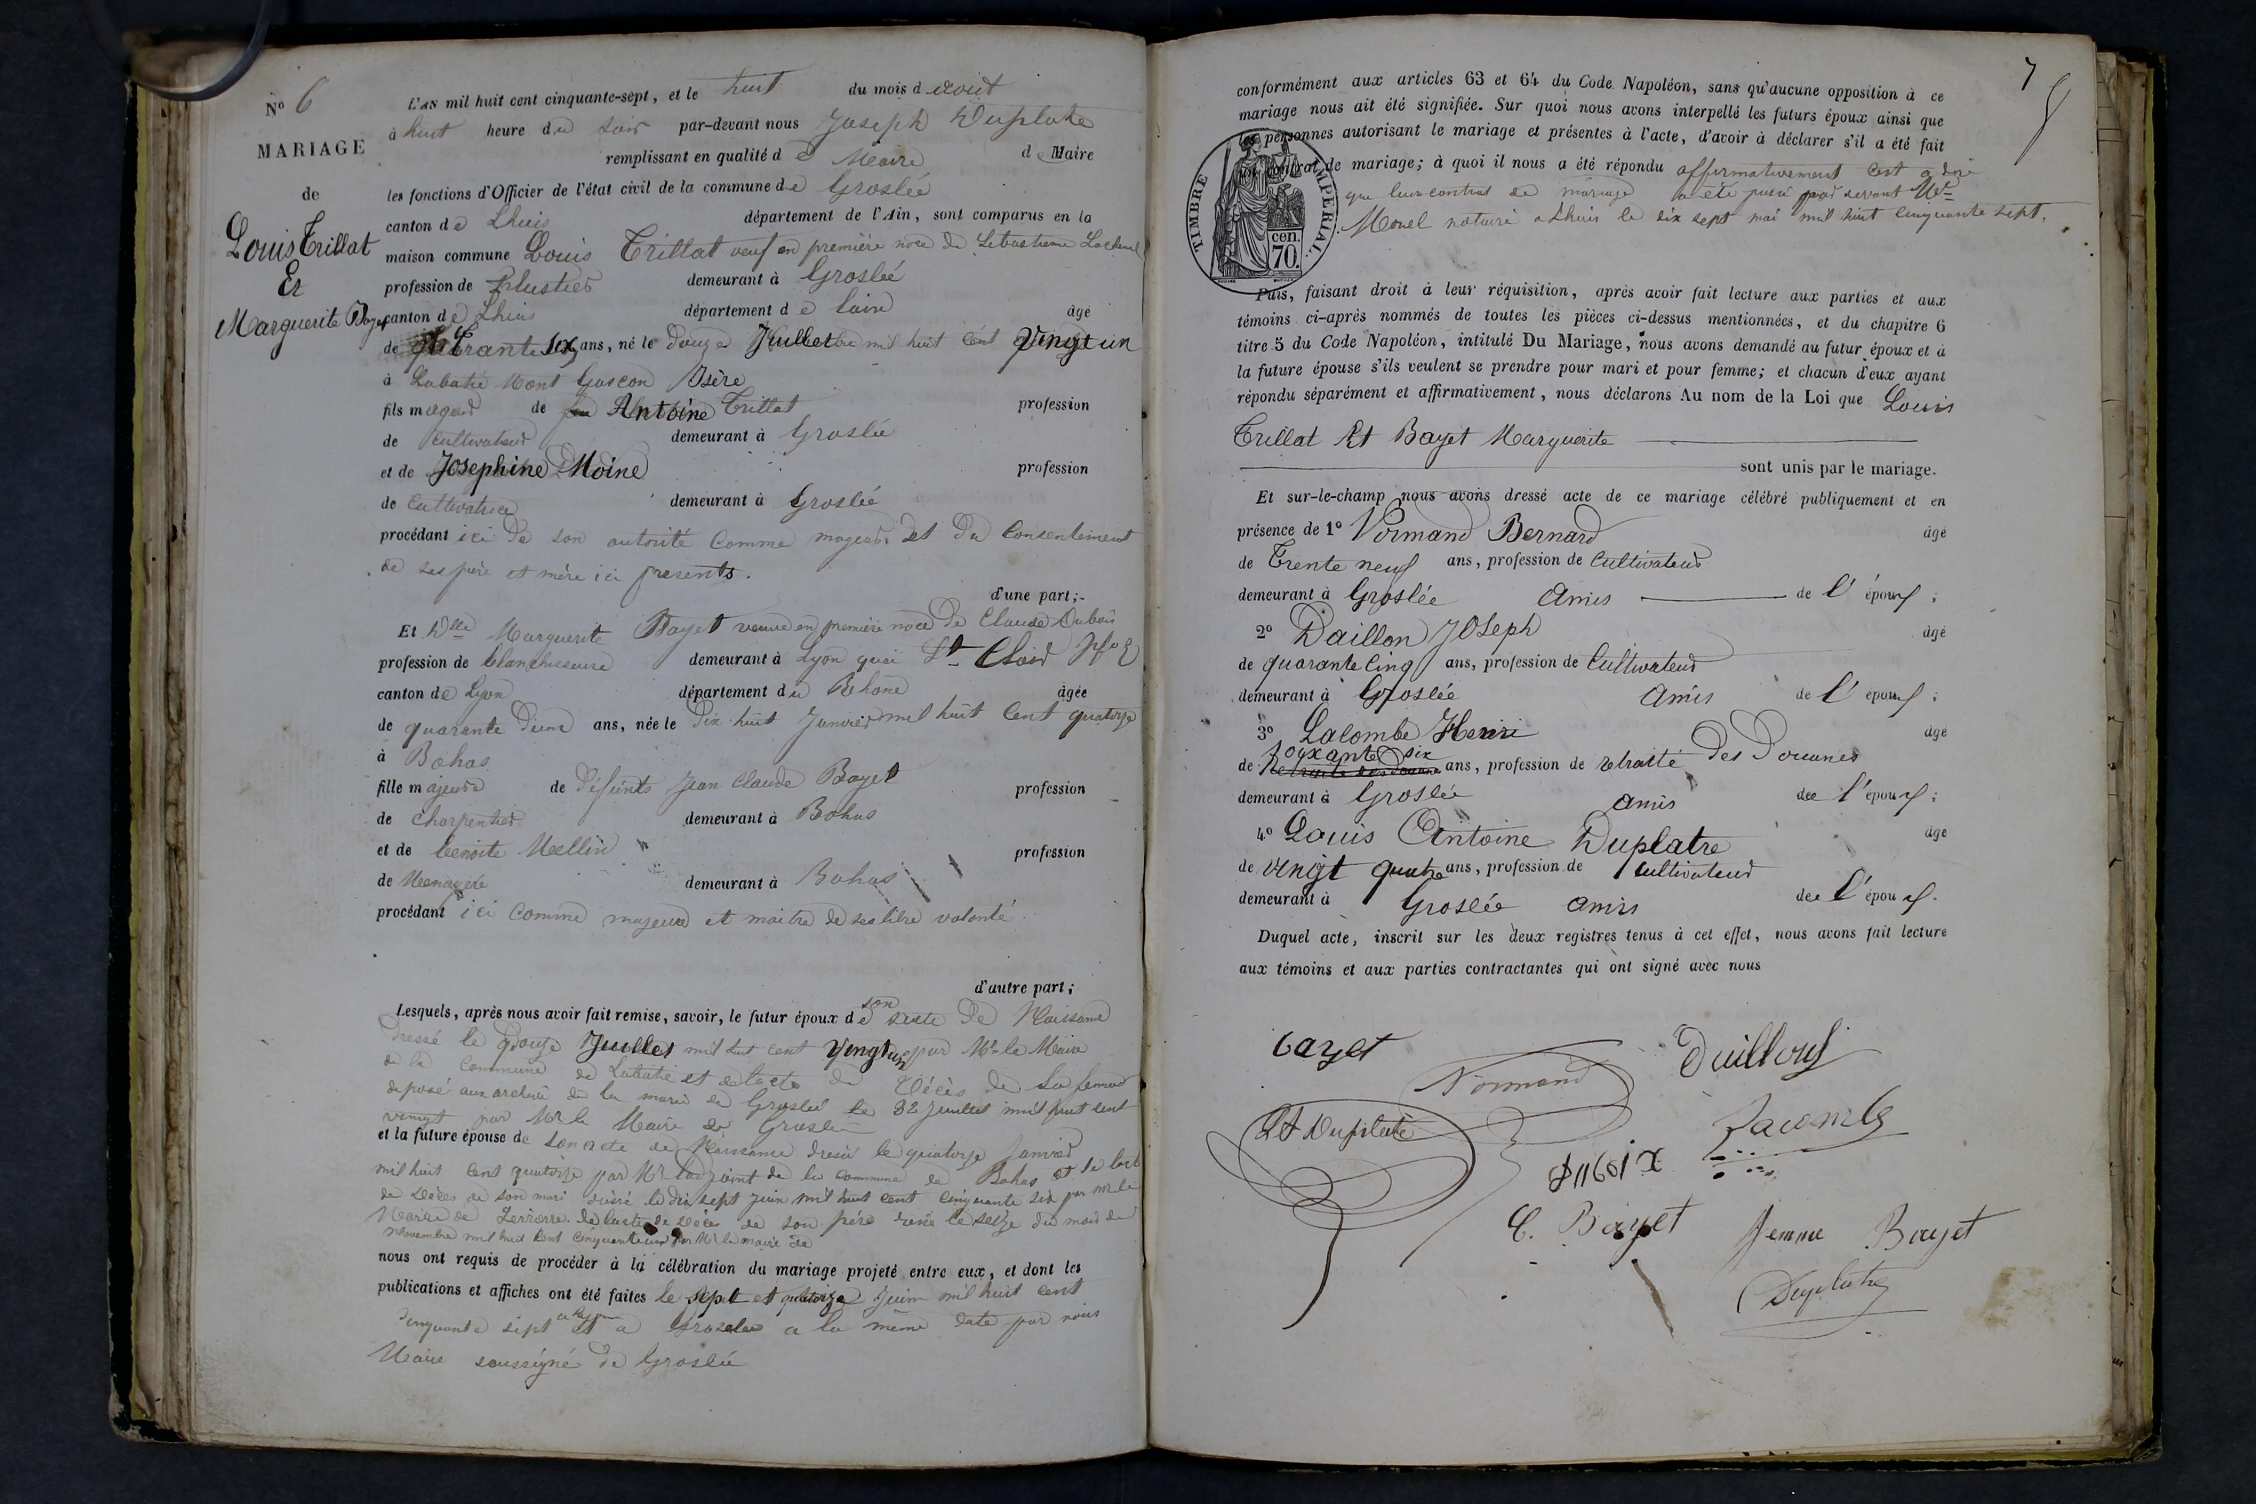 N° 6
MARIAGE
de
Louis Trillat
Et
Marguerite Bayet
L'an mil huit cent cinquante-sept, et le huit du mois d août
à huit heure du soir par-devant nous Joseph Duplatre
remplissant en qualité de Maire d Maire
les fonctions d'Officier de l'état civil de la commune de Groslée
canton de Lhuis département de l'Ain, sont comparus en la
maison commune Louis Trillat veuf en première noce de
profession de demeurant à Groslée
canton de Lhuis département de lain âgé
de six ans, né le Douze Juillet mil huit cent Vingt un
à Labatie Mont Gascon Isère
fils mageur de Antoine Trillat profession
de Cultivateur demeurant à Groslée
et de Josephine Moine profession
de Cultivatrice demeurant à Groslée
procédant ici de son autorité comme mageur et du consentement
de ses père et mère ici presents.
d'une part;
Et Dlle Marguerite Bayet veuve en première noce de Claude Dubois
profession de blanchisseuse demeurant à Lyon quai St Clair
canton de Lyon département du Rhône âgée
de quarante deux ans, née le Dix huit Janvier mil huit cent quatorze
à Bohas
fille majeure de défunts Jean Claude Bayet profession
de Charpentier demeurant à Bohas
et de benoite Mellin profession
de Menagère demeurant à Bohas
procédant ici comme majeure et maitre de sa libre volonté
d'autre part;
Lesquels, après nous avoir fait remise, savoir, le futur époux de son acte de Naissance
dressé le Douze Juillet mil huit cent Vingt un par Mr le Maire
de la commune de Labatie et de lacte de Décès de sa femme
deposé aux archives de la mairie de Groslée le 32 Juillet mil huit cent
vingt par Mr le Maire de Groslée
et la future épouse de son acte de Naissance dressé le quatorze Janvier
mil huit cent quatorze par Mr ladjoint de la commune de Bohas et de lacte
de Décès de son mari dressé le dix sept Juin mil huit cent cinquante six par Mr le
Maire de de lacte de Décès de son père dressé le seize du mois de
novembre mil huit cent cinquante un par Mr le maire de
nous ont requis de procéder à la célébration du mariage projeté entre eux, et dont les
publications et affiches ont été faites le sept et quatorze Juin mil huit cent
cinquante sept a Lyon et a Groslée a la même date par nous
Maire soussigné de Groslée
7
conformément aux articles 63 et 64 du Code Napoléon, sans qu'aucune opposition à ce
mariage nous ait été signifiée. Sur quoi nous avons interpellé les futurs époux ainsi que
les personnes autorisant le mariage et présentes à l'acte, d'avoir à déclarer s'il a été fait
un contrat de mariage; à quoi il nous a été répondu affirmativement cest a dire
que leur contrat de mariage a été passé par devant Me
Morel notaire a Lhuis le dix sept mai mil huit cinquante sept.
TIMBRE IMPERIAL
70 cen.
Puis, faisant droit à leur réquisition, après avoir fait lecture aux parties et aux
témoins ci-après nommés de toutes les pièces ci-dessus mentionnées, et du chapitre 6
titre 5 du Code Napoléon, intitulé Du Mariage, nous avons demandé au futur époux et à
la future épouse s'ils veulent se prendre pour mari et pour femme; et chacun d'eux ayant
répondu séparément et affirmativement, nous déclarons Au nom de la Loi que Louis
Trillat Et Bayet Marguerite
sont unis par le mariage.
Et sur-le-champ nous avons dressé acte de ce mariage célébré publiquement et en
présence de 1° Normand Bernard âgé
de Trente neuf ans, profession de Cultivateur
demeurant à Groslée Amis de l' époux;
2° Daillon Joseph âgé
de quarante cinq ans, profession de Cultivateur
demeurant à Groslée Amis de l' époux;
3° Lacombe Henri âgé
de soixante six ans, profession de retraité Des Douanes
demeurant à Groslée amis de l'époux;
4° Louis Antoine Duplatre âgé
de vingt quatre ans, profession de Cultivateur
demeurant à Groslée amis de l'époux.
Duquel acte, inscrit sur les deux registres tenus à cet effet, nous avons fait lecture
aux témoins et aux parties contractantes qui ont signé avec nous
bayet
Daillon
Normand
Lacombe
LA Duplatre
C. Bayet
femme Bayet
Duplatre